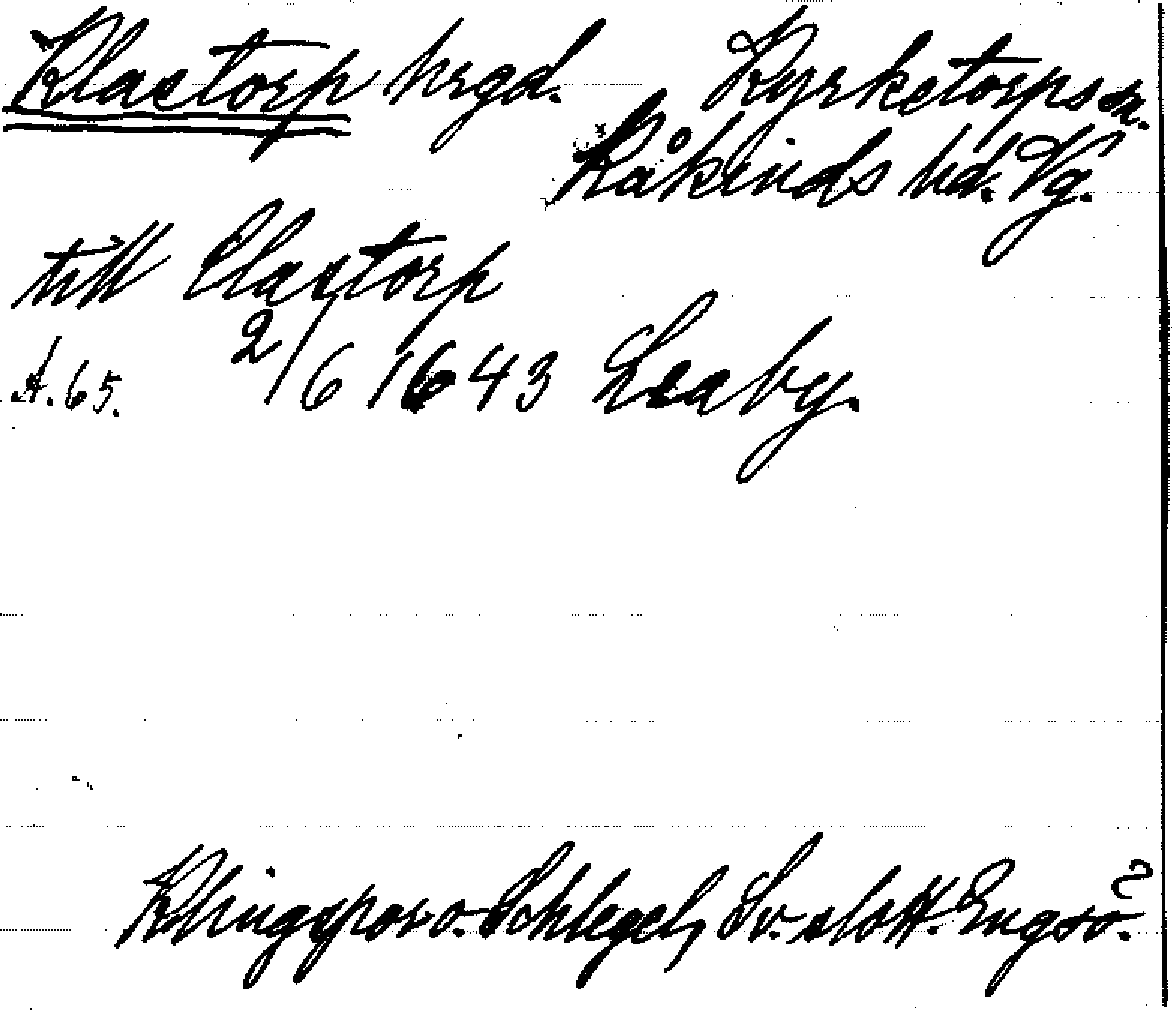 Klastorp hrgd. Kyrketorps sn.
Kåkinds hd. Vg.
till Clastorp
A.65. 2/6 1643 Leaby.
Klingspor o. Schlegel, Sv. slott. Engsö.